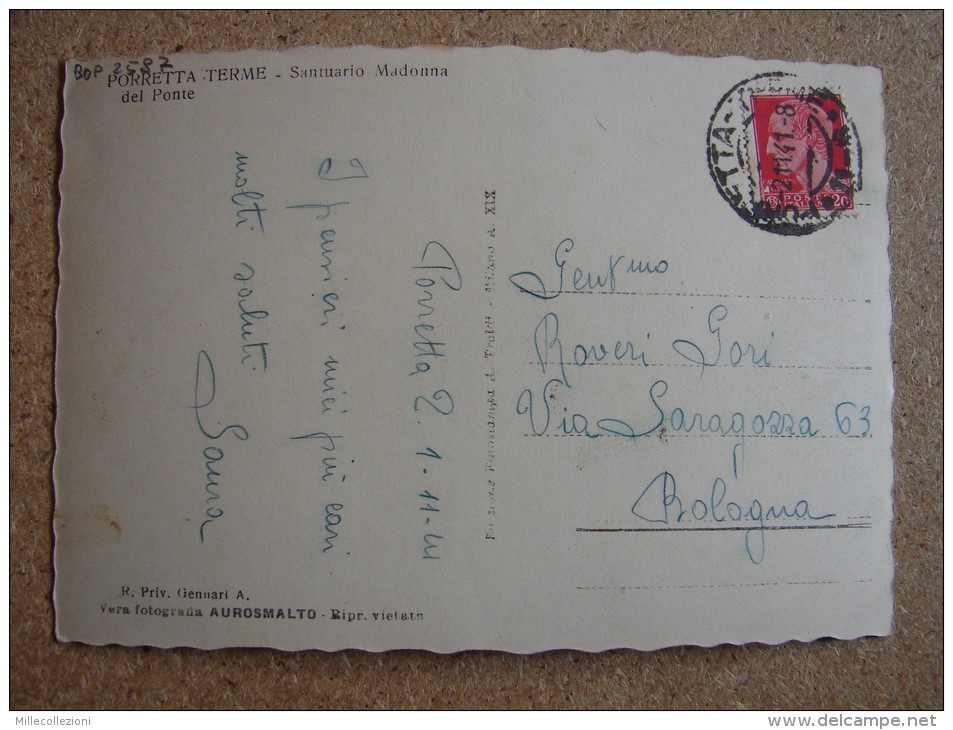 BOP 2587
PORRETTA TERME - Santuario Madonna
del Ponte
I pensieri miei più cari
molti saluti
Laura
Porretta 2. 1-11-41
R. Priv. Gennari A.
Vera fotografia AUROSMALTO - Ripr. vietata
Milano A. XIX
2.11.41.-8
POSTE
ITALIANE
20
Gent mo
Roveri Gori
Via Saragozza 63
Bologna
Millecollezioni
http://www.delcampe.net